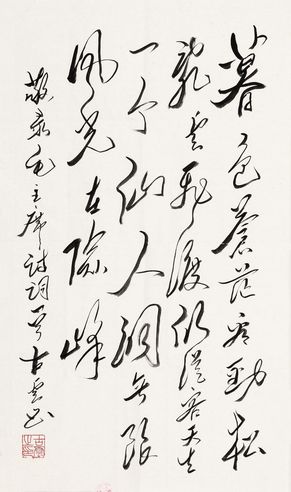 暮色蒼茫看勁松
亂雲飛渡仍從容天生
一个仙人洞無限
風光在險峰
敬录毛主席詩詞